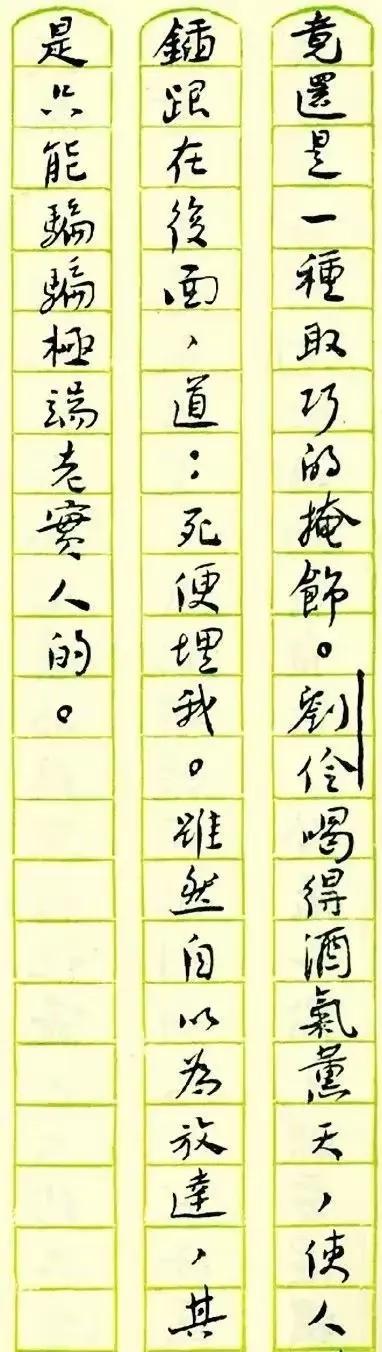 竟還是一種取巧的掩飾。劉伶喝得酒氣薰天，使人
鍤跟在後面，道：死便埋我。雖然自以為放達，其
是只能騙騙極端老實人的。